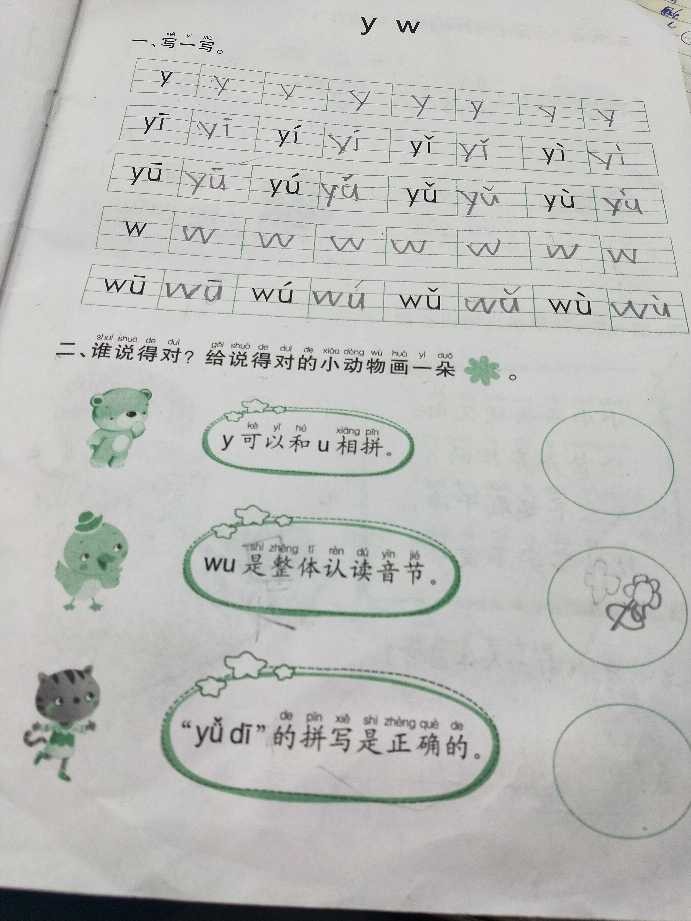 y w
xiě yì xiě
一、写一写。
y y y y y y y y
yī yī yí yí yǐ yǐ yì yì
yū yū yú yú yǔ yǔ yù yù
w w w w w w w w
wū wū wú wú wǔ wǔ wù wù
shuí shuō de duì gěi shuō de duì de xiǎo dòng wù huà yì duǒ
二、谁说得对？给说得对的小动物画一朵 。
kě yǐ hé xiāng pīn
y 可以和 u 相拼。
shì zhěng tǐ rèn dú yīn jié
wu 是整体认读音节。
de pīn xiě shì zhèng què de
“yǔ dī”的拼写是正确的。